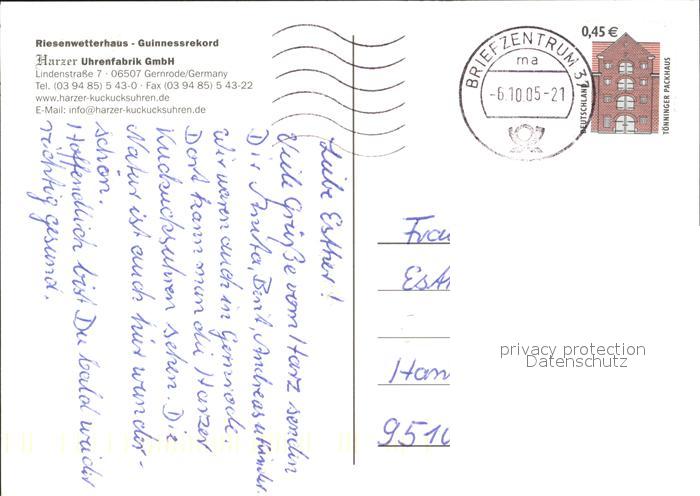 Riesenwetterhaus - Guinnessrekord
Harzer Uhrenfabrik GmbH
Lindenstraße 7 · 06507 Gernrode/Germany
Tel. (03 94 85) 5 43-0 · Fax (03 94 85) 5 43-22
www.harzer-kuckucksuhren.de
E-Mail: info@harzer-kuckucksuhren.de
Liebe Esther!
Viele Grüße vom Harz senden
Dir Anita, Bernt, Andreas u Kinder.
Wir waren auch in Gernrode.
Dort kann man die Harzer
Kuckucksuhren sehen. Die
Natur ist auch hier wunder-
schön.
Hoffendlich bist Du bald wieder
richtig gesund.
BRIEFZENTRUM 37
ma
-6.10.05-21
0,45 €
DEUTSCHLAND
TÖNNINGER PACKHAUS
Frau
Esth
Han
9510
privacy protection
Datenschutz